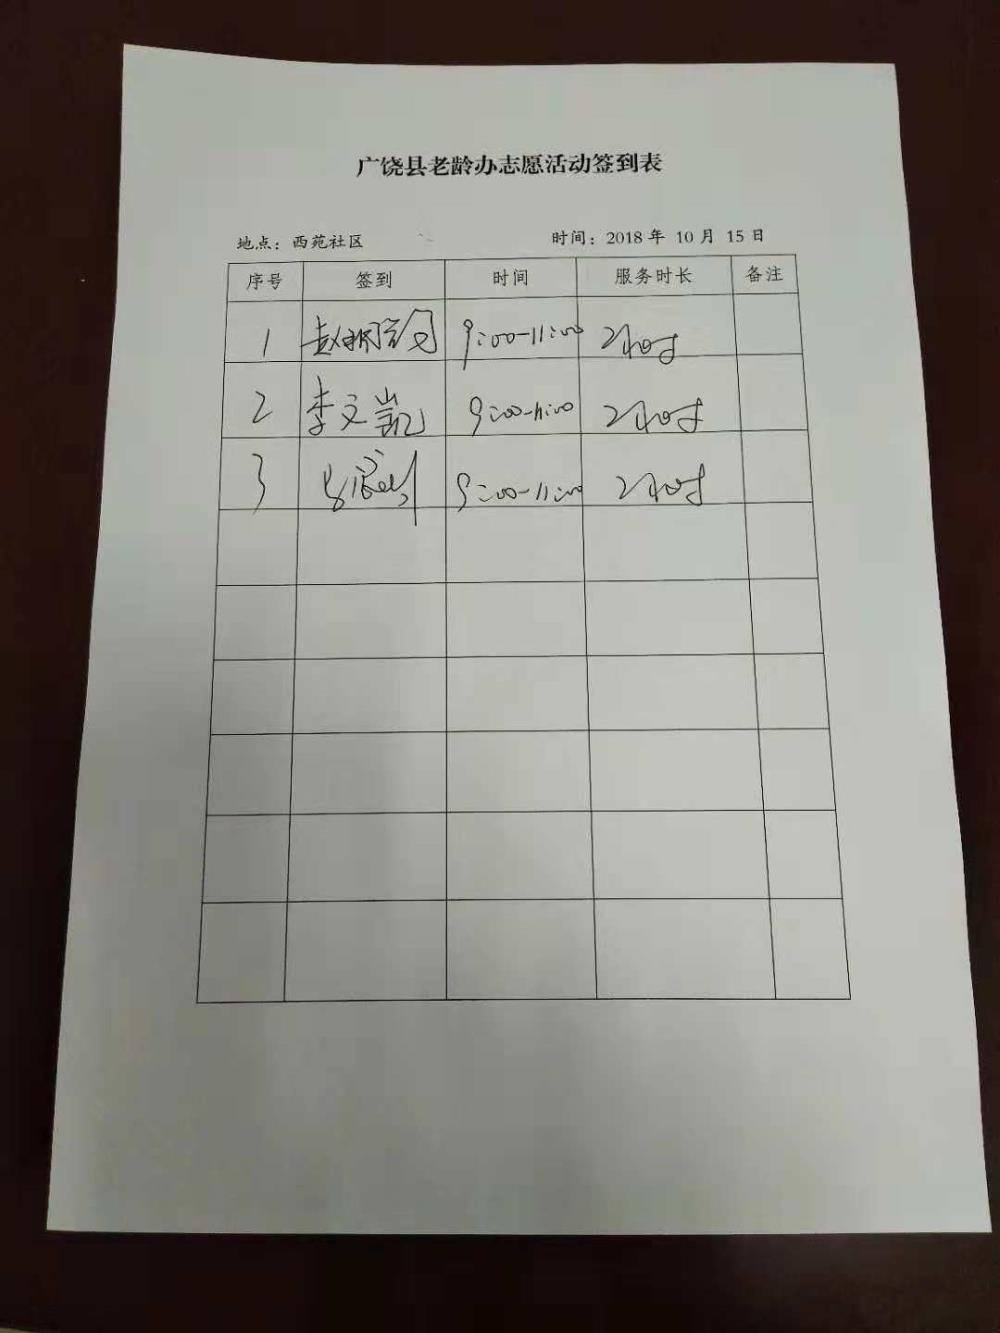 广饶县老龄办志愿活动签到表
地点：西苑社区 时间：2018 年 10 月 15 日
序号 签到 时间 服务时长 备注
1 赵 9:00-11:00 2小时
2 李文凯 9:00-11:00 2小时
3 9:00-11:00 2小时